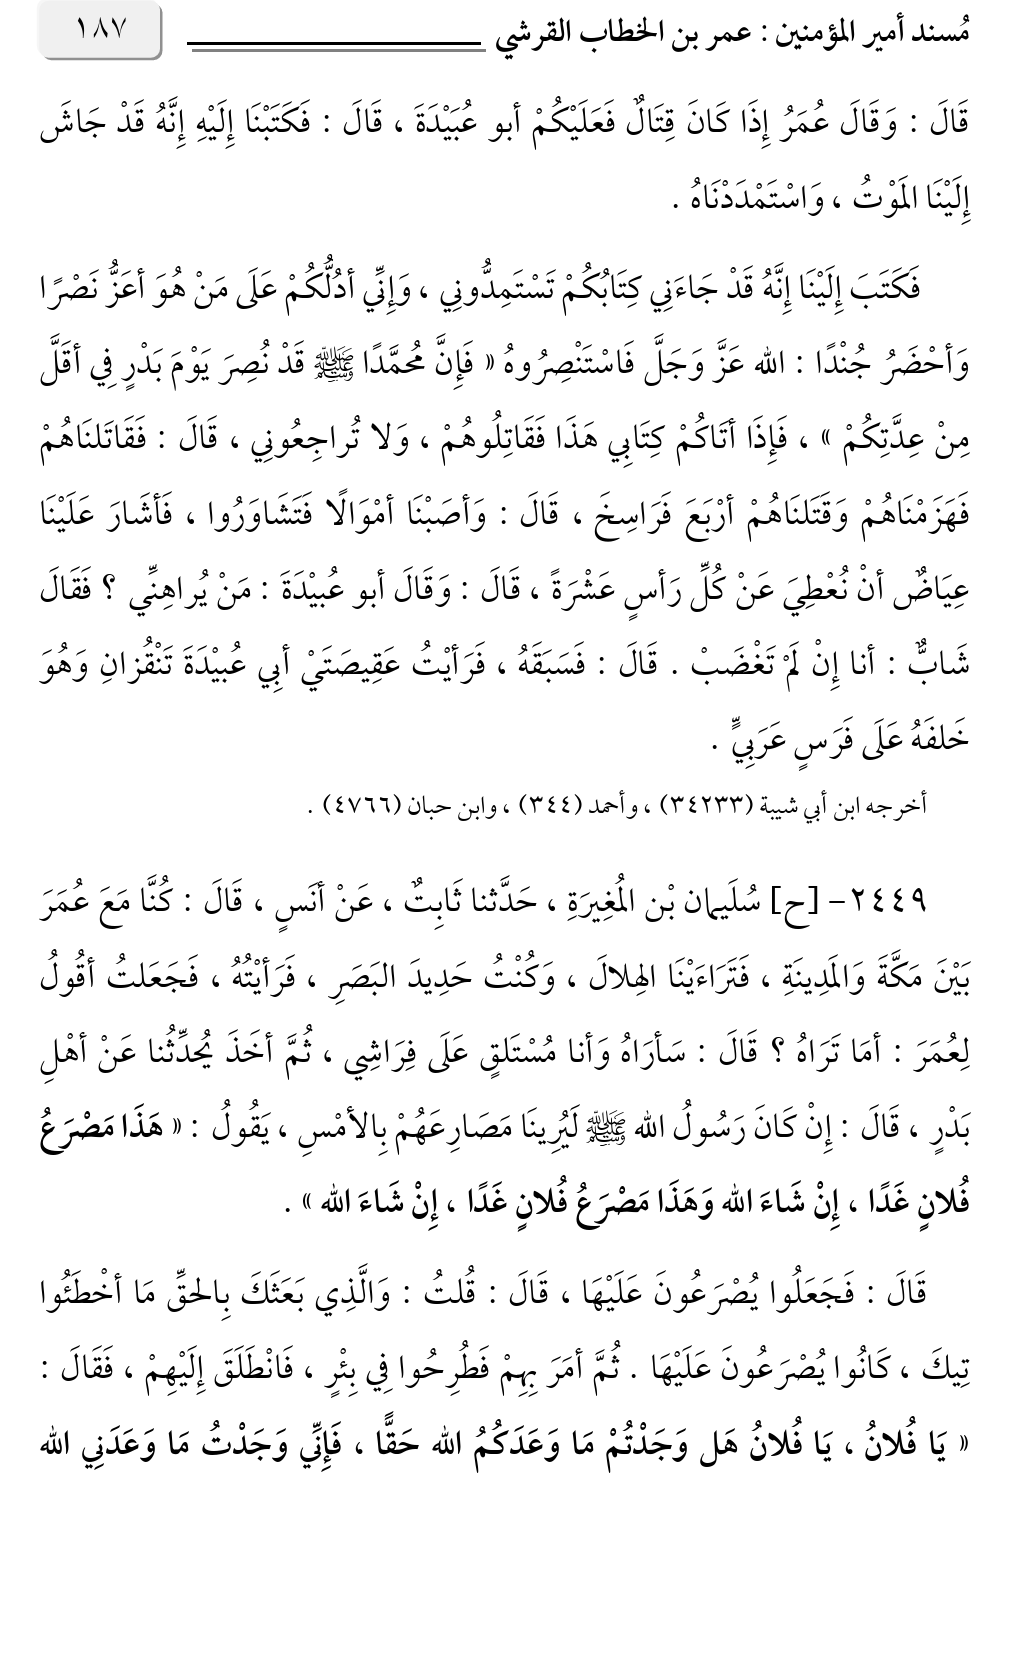 مُسند أمير المؤمنين : عمر بن الخطاب القرشي ١٨٧
قَالَ : وَقَالَ عُمَرُ إِذَا كَانَ قِتَالٌ فَعَلَيْكُمْ أبو عُبَيْدَةَ ، قَالَ : فَكَتَبْنَا إِلَيْهِ إِنَّهُ قَدْ جَاشَ
إِلَيْنَا المَوْتُ ، وَاسْتَمْدَدْنَاهُ .
فَكَتَبَ إِلَيْنَا إِنَّهُ قَدْ جَاءَنِي كِتَابُكُمْ تَسْتَمِدُّونِي ، وَإِنِّي أدُلُّكُمْ عَلَى مَنْ هُوَ أعَزُّ نَصْرًا
وَأحْضَرُ جُنْدًا : الله عَزَّ وَجَلَّ فَاسْتَنْصِرُوهُ « فَإِنَّ مُحمَّدًا ﷺ قَدْ نُصِرَ يَوْمَ بَدْرٍ فِي أقَلَّ
مِنْ عِدَّتِكُمْ » ، فَإِذَا أتَاكُمْ كِتَابِي هَذَا فَقَاتِلُوهُمْ ، وَلا تُراجِعُونِي ، قَالَ : فَقَاتَلنَاهُمْ
فَهَزَمْنَاهُمْ وَقَتَلنَاهُمْ أرْبَعَ فَرَاسِخَ ، قَالَ : وَأصَبْنَا أمْوَالًا فَتَشَاوَرُوا ، فَأشَارَ عَلَيْنَا
عِيَاضٌ أنْ نُعْطِيَ عَنْ كُلِّ رَأسٍ عَشْرَةً ، قَالَ : وَقَالَ أبو عُبيْدَةَ : مَنْ يُراهِنِّي ؟ فَقَالَ
شَابٌّ : أنا إِنْ لَمْ تَغْضَبْ . قَالَ : فَسَبَقَهُ ، فَرَأيْتُ عَقِيصَتَيْ أبِي عُبيْدَةَ تَنْقُزانِ وَهُوَ
خَلفَهُ عَلَى فَرَسٍ عَرَبِيٍّ .
أخرجه ابن أبي شيبة (٣٤٢٣٣) ، وأحمد (٣٤٤) ، وابن حبان (٤٧٦٦) .
٢٤٤٩- [ح] سُلَيمان بْن المُغِيرَةِ ، حَدَّثنا ثَابِتٌ ، عَنْ أنَسٍ ، قَالَ : كُنَّا مَعَ عُمَرَ
بَيْنَ مَكَّةَ وَالمَدِينَةِ ، فَتَرَاءَيْنَا الهِلالَ ، وَكُنْتُ حَدِيدَ البَصَرِ ، فَرَأيْتُهُ ، فَجَعَلتُ أقُولُ
لِعُمَرَ : أمَا تَرَاهُ ؟ قَالَ : سَأرَاهُ وَأنا مُسْتَلقٍ عَلَى فِرَاشِي ، ثُمَّ أخَذَ يُحدِّثُنا عَنْ أهْلِ
بَدْرٍ ، قَالَ : إِنْ كَانَ رَسُولُ الله ﷺ لَيُرِينَا مَصَارِعَهُمْ بِالأمْسِ ، يَقُولُ : « هَذَا مَصْرَعُ
فُلانٍ غَدًا ، إِنْ شَاءَ الله وَهَذَا مَصْرَعُ فُلانٍ غَدًا ، إِنْ شَاءَ الله » .
قَالَ : فَجَعَلُوا يُصْرَعُونَ عَلَيْهَا ، قَالَ : قُلتُ : وَالَّذِي بَعَثَكَ بِالحقِّ مَا أخْطَئُوا
تِيكَ ، كَانُوا يُصْرَعُونَ عَلَيْهَا . ثُمَّ أمَرَ بِهِمْ فَطُرِحُوا فِي بِئْرٍ ، فَانْطَلَقَ إِلَيْهِمْ ، فَقَالَ :
« يَا فُلانُ ، يَا فُلانُ هَل وَجَدْتُمْ مَا وَعَدَكُمُ الله حَقًّا ، فَإِنِّي وَجَدْتُ مَا وَعَدَنِي الله